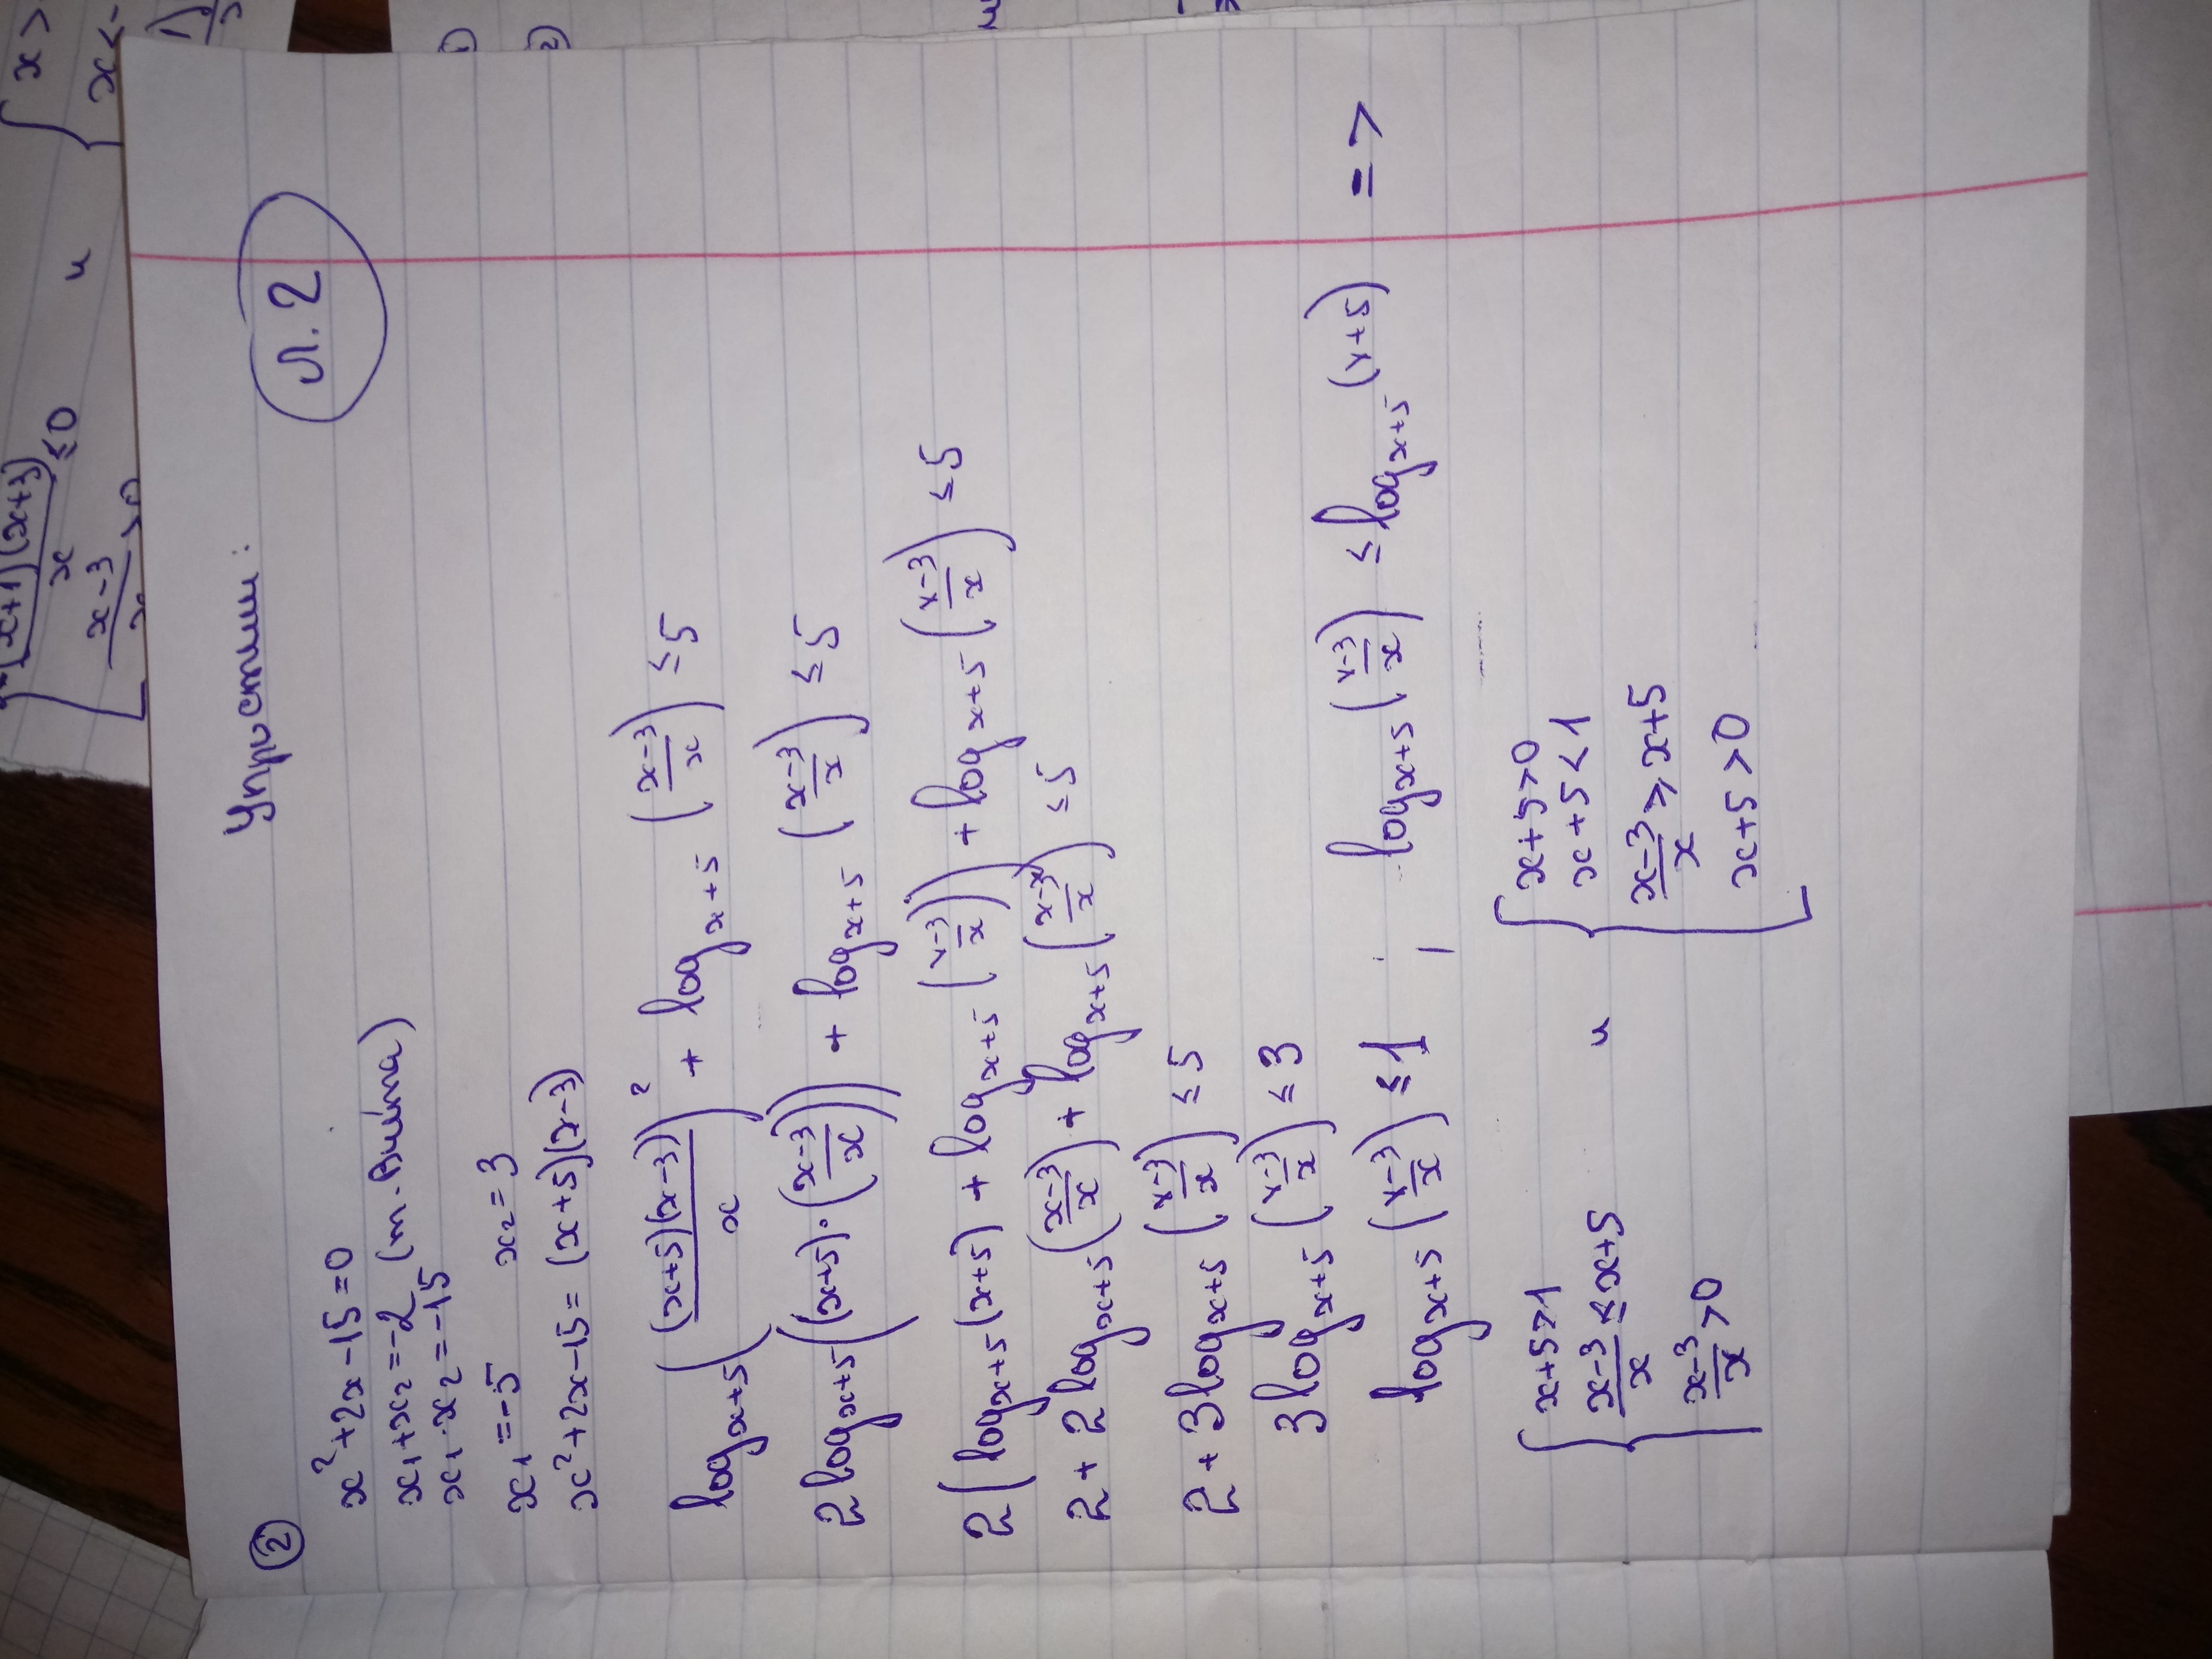 л. 2
② Упростим:
x²+2x-15=0
x₁+x₂=-2 (т. Виета)
x₁·x₂=-15
x₁=-5 x₂=3
x²+2x-15=(x+5)(x-3)
log_{x+5}(\frac{(x+5)(x-3)}{x})² + log_{x+5}(\frac{x-3}{x}) ≤5
2log_{x+5}((x+5)·(\frac{x-3}{x})) + log_{x+5}(\frac{x-3}{x}) ≤5
2(log_{x+5}(x+5)+log_{x+5}(\frac{x-3}{x})) + log_{x+5}(\frac{x-3}{x}) ≤5
2+2log_{x+5}(\frac{x-3}{x})+log_{x+5}(\frac{x-3}{x}) ≤5
2+3log_{x+5}(\frac{x-3}{x}) ≤5
3log_{x+5}(\frac{x-3}{x}) ≤3
log_{x+5}(\frac{x-3}{x}) ≤1 , log_{x+5}(\frac{x-3}{x}) ≤log_{x+5}(x+5) =>
{ x+5>1 и { x+5>0
x+5<1
\frac{x-3}{x}≤x+5 \frac{x-3}{x}≥x+5
\frac{x-3}{x}>0 x+5>0
(x+1)(x+3)
x ≤0
\frac{x-3}{x}>0
и
{ x>
x<-
①
②